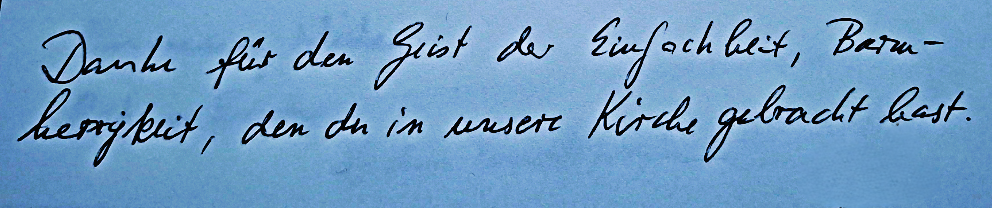 Danke für den Geist der Einfachheit, Barm-
herzigkeit, den du in unsere Kirche gebracht hast.